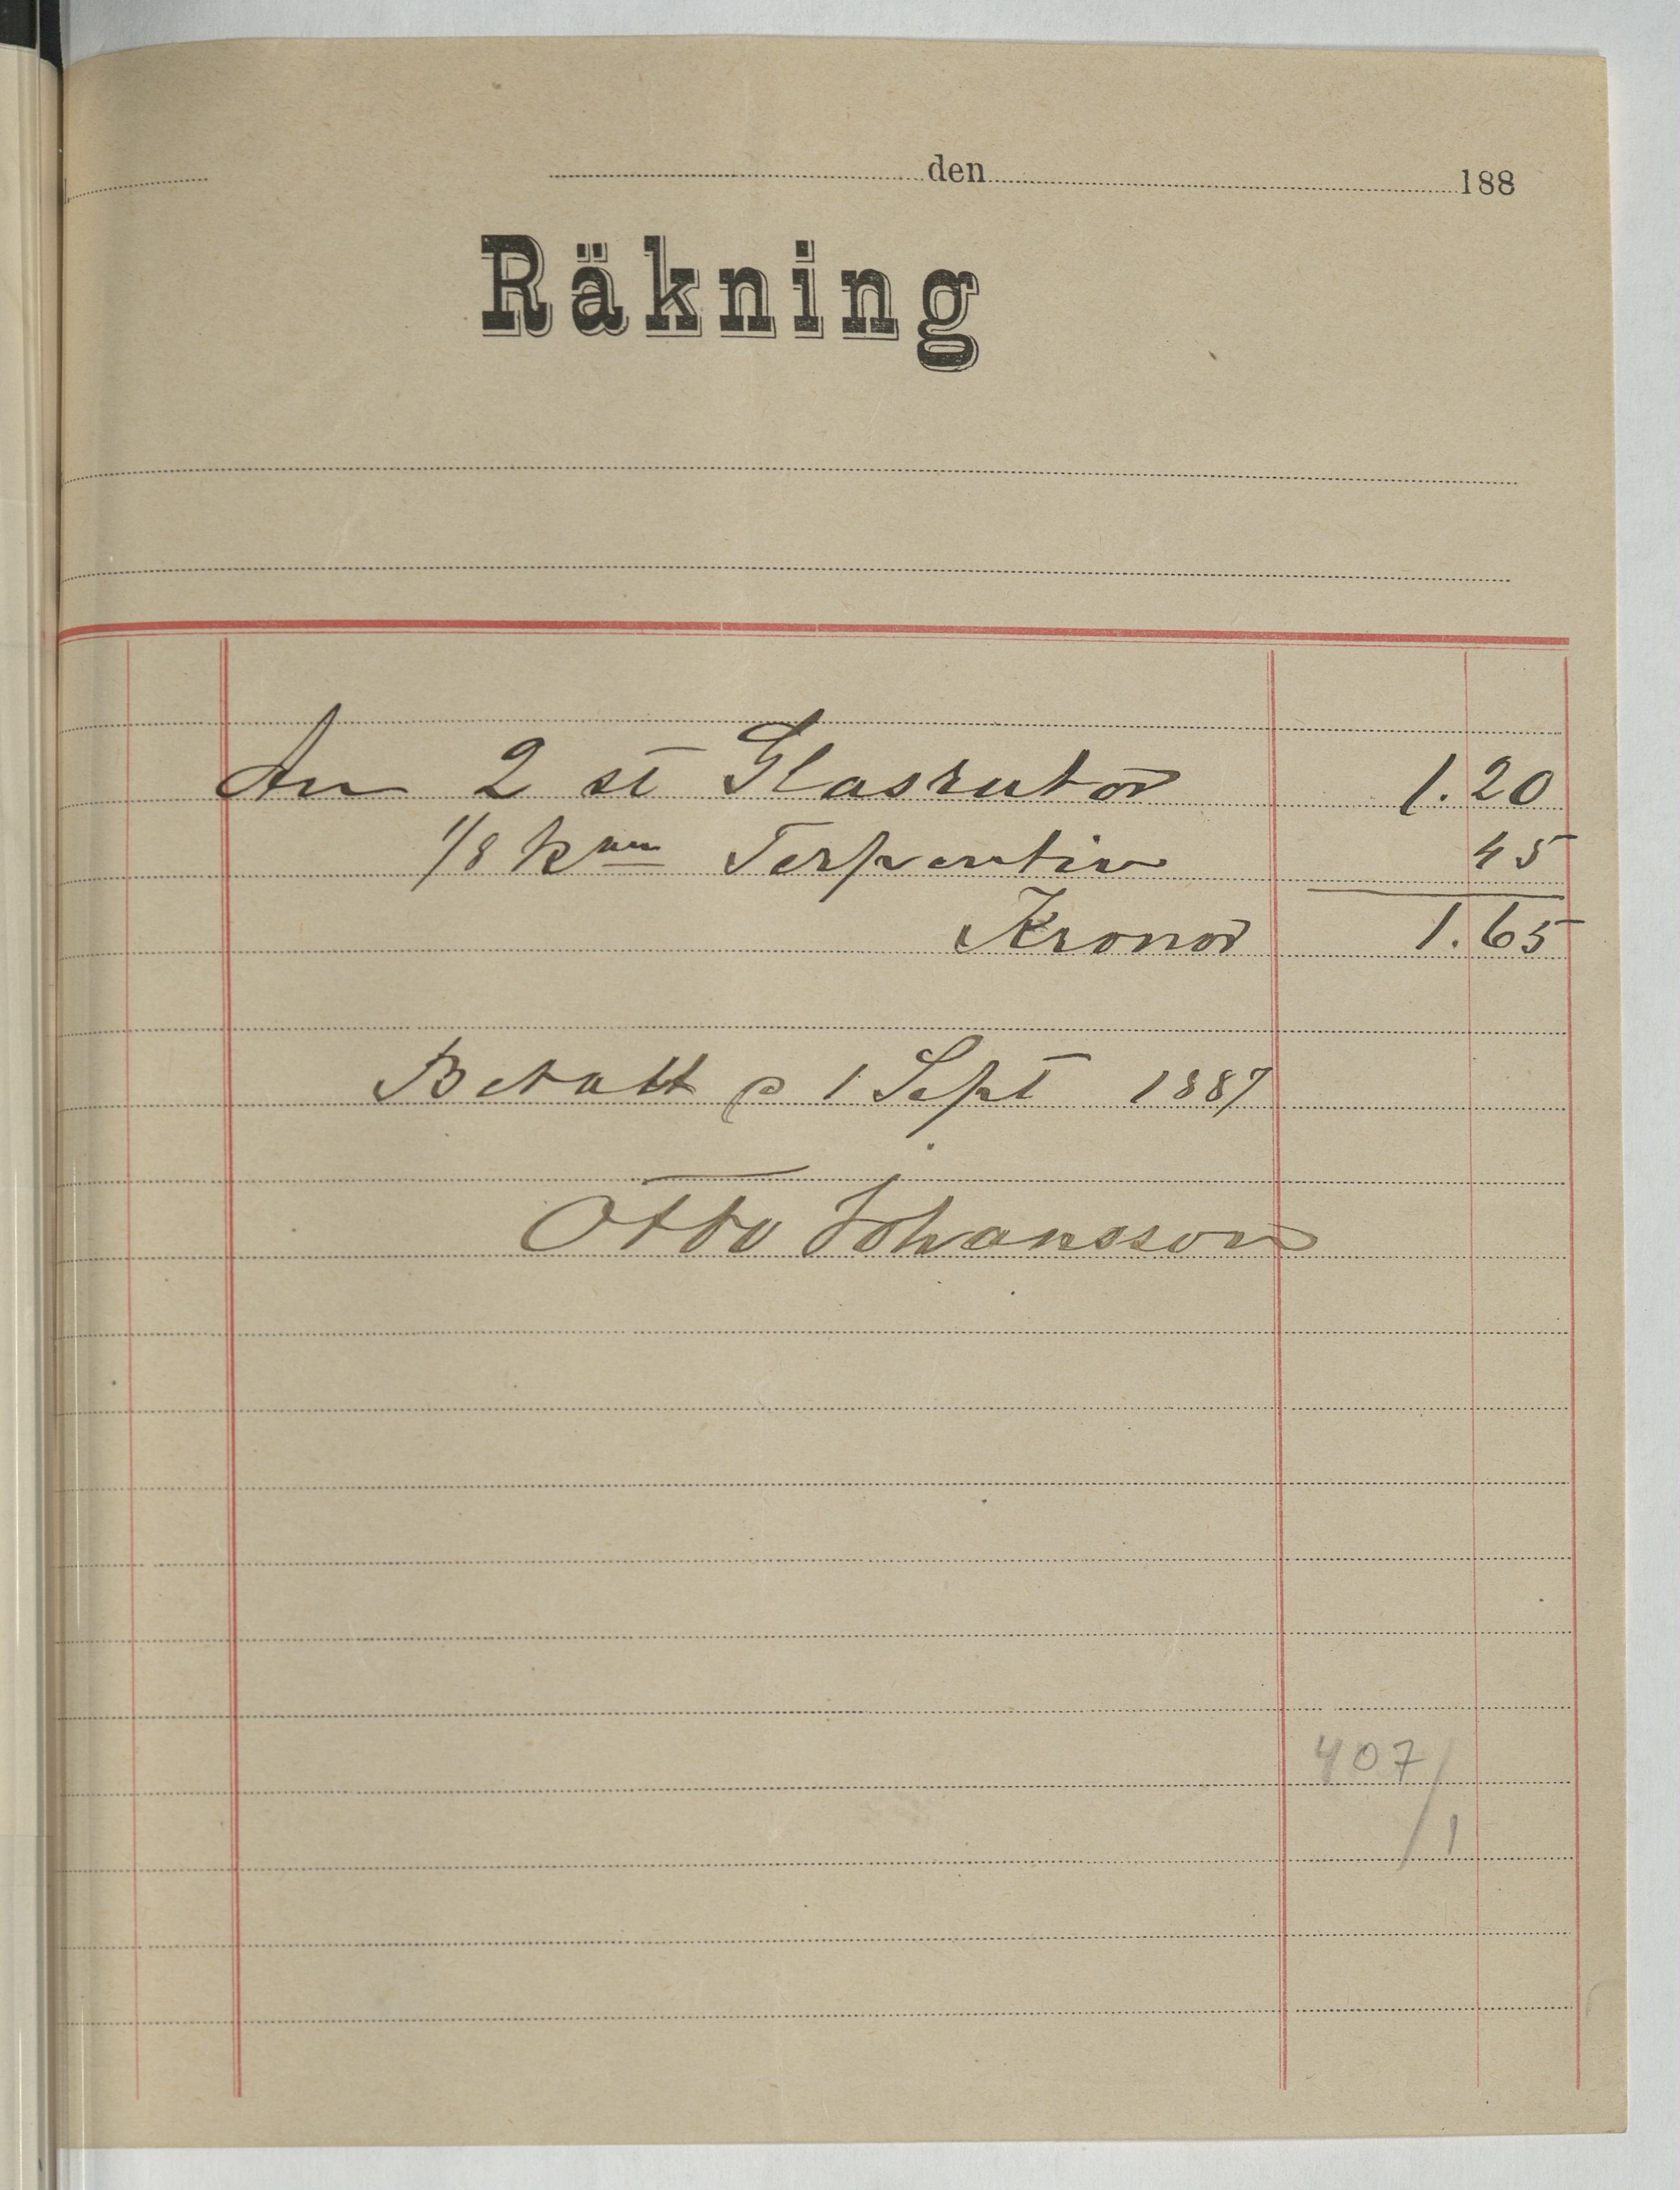 den 188
Räkning
An 2 st Glasrutor 1.20
1/8 kan Terpentin 45
Kronor 1.65
Betalt d 1 Sept 1887
Otto Johansson
407/1